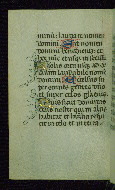 minum: laudate nomen
domini Sit nomen
domini benedictum: ex
hoc nunc et usque in
solis ortu usque ad oc
casum laudabile nomen
domini Excelsus su
per omnes gentes dns
et super celos gloria eius
Quis sicut dominus
deus noster qui in altis
habitat et humilia respi
cit in celo et in terra